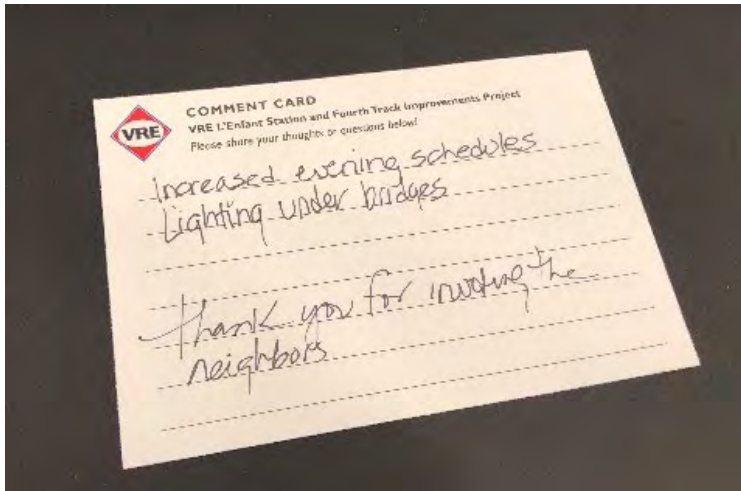 VRE
COMMENT CARD
VRE L'Enfant Station and Fourth Track Improvements Project
Please share your thoughts or questions below!
increased evening schedules
Lighting under bridges
thank you for inviting the
neighbors